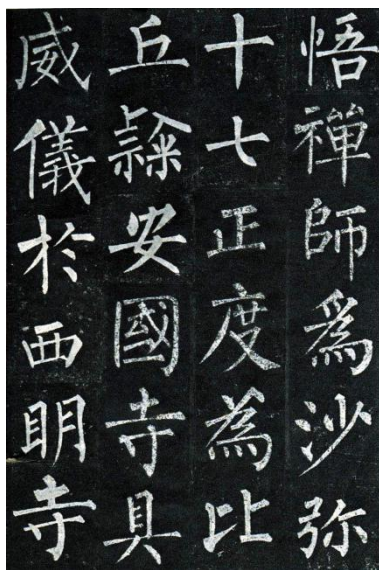 悟禪師爲沙弥
十七正度為比
丘隸安國寺具
威儀扵西眀寺